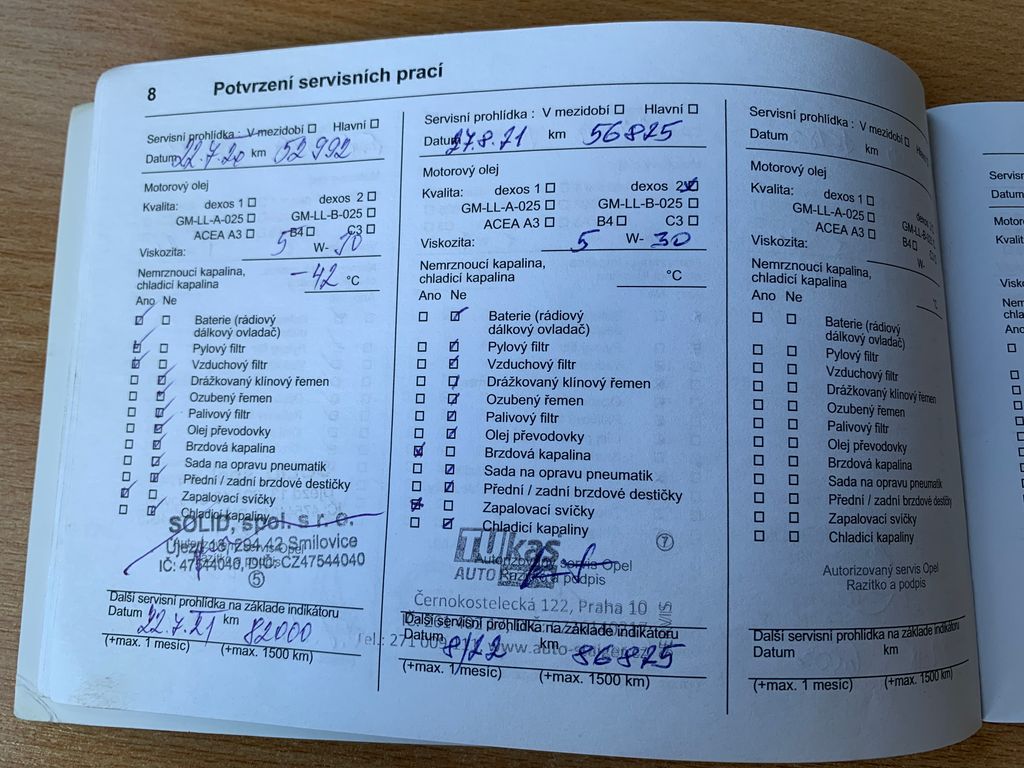 8 Potvrzení servisních prací
Servisní prohlídka : V mezidobí Hlavní
Datum 22.7.20 km 52 992
Motorový olej
Kvalita: dexos 1 dexos 2
GM-LL-A-025 GM-LL-B-025
ACEA A3 B4 C3
Viskozita: 5 W- 30
Nemrznoucí kapalina,
chladicí kapalina -42 °C
Ano Ne
Baterie (rádiový
dálkový ovladač)
Pylový filtr
Vzduchový filtr
Drážkovaný klínový řemen
Ozubený řemen
Palivový filtr
Olej převodovky
Brzdová kapalina
Sada na opravu pneumatik
Přední / zadní brzdové destičky
Zapalovací svíčky
Chladicí kapaliny
SOLID, spol. s r. o.
Autorizovaný servis Opel
Újezd 13, 294 42 Smilovice
Razítko a podpis
IČ: 47544040, DIČ: CZ47544040
5
Další servisní prohlídka na základě indikátoru
Datum 22.7.21 km 82000
(+max. 1 mesíc) (+max. 1500 km)
Servisní prohlídka : V mezidobí Hlavní
Datum 27.8.21 km 56875
Motorový olej
Kvalita: dexos 1 dexos 2
GM-LL-A-025 GM-LL-B-025
ACEA A3 B4 C3
Viskozita: 5 W- 30
Nemrznoucí kapalina,
chladicí kapalina °C
Ano Ne
Baterie (rádiový
dálkový ovladač)
Pylový filtr
Vzduchový filtr
Drážkovaný klínový řemen
Ozubený řemen
Palivový filtr
Olej převodovky
Brzdová kapalina
Sada na opravu pneumatik
Přední / zadní brzdové destičky
Zapalovací svíčky
Chladicí kapaliny
7
AUTO
Autorizovaný servis Opel
Razítko a podpis
Černokostelecká 122, Praha 10
Další servisní prohlídka na základě indikátoru
Datum 8/22 km 86875
(+max. 1 mesíc) (+max. 1500 km)
Servisní prohlídka : V mezidobí
Datum km
Motorový olej
Kvalita: dexos 1
GM-LL-A-025 GM-LL-B-025
ACEA A3 B4
Viskozita: W-
Nemrznoucí kapalina,
chladicí kapalina °C
Ano Ne
Baterie (rádiový
dálkový ovladač)
Pylový filtr
Vzduchový filtr
Drážkovaný klínový řemen
Ozubený řemen
Palivový filtr
Olej převodovky
Brzdová kapalina
Sada na opravu pneumatik
Přední / zadní brzdové destičky
Zapalovací svíčky
Chladicí kapaliny
Autorizovaný servis Opel
Razítko a podpis
Další servisní prohlídka na základě indikátoru
Datum km
(+max. 1 mesíc) (+max. 1500 km)